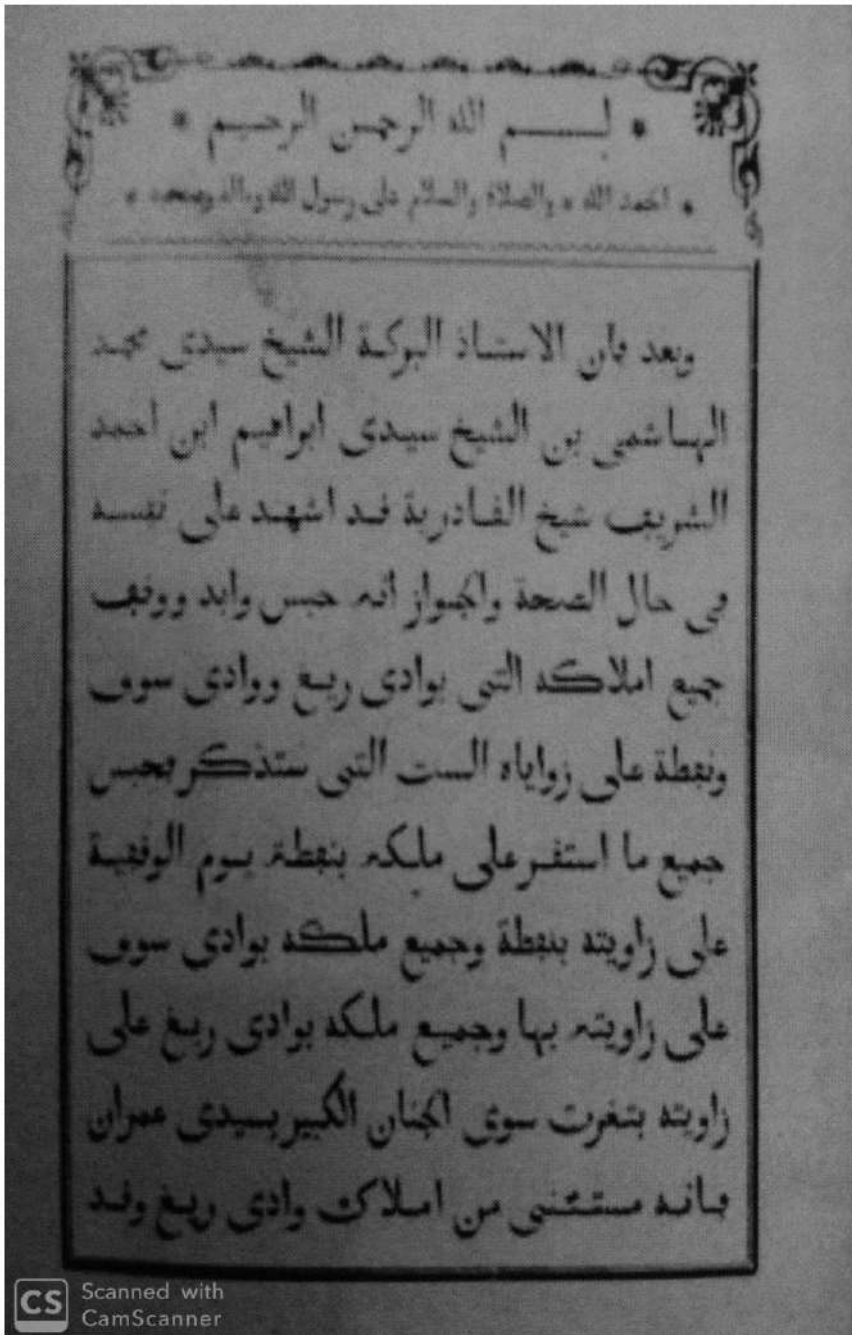 * بسم الله الرحمن الرحيم *
* الحمد لله * والصلاة والسلام على رسول الله وءاله وصحبه *
وبعد ڢان الاستاذ البركة الشيخ سيدى محمد
الهاشمي بن الشيخ سيدى ابراهيم ابن احمد
الشريڢ شيخ الڧادرية ڧد اشهد على نڢسه
ڢي حال الصحة والجواز انه حبس وابد ووڧڢ
جميع املاكه التي بوادى ريغ ووادى سوڢ
ونڢطة على زواياه الست التي ستذكر بحبس
جميع ما استڧر على ملكه بنڢطة يوم الوڧڢية
على زاويته بنڢطة وجميع ملكه بوادى سوڢ
على زاويته بها وجميع ملكه بوادى ريغ على
زاويته بتغرت سوى الجنان الكبير بسيدى عمران
ڢانه مستثنى من املاك وادى ريغ وڧد
CS Scanned with
CamScanner